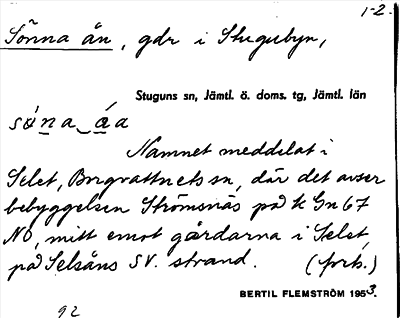 1-2.
Sönna ån, gdr i Stugubyn,
Stuguns sn, Jämtl. ö. doms. tg, Jämtl. län
Namnet meddelat i
Selet, Borgvattnets sn, där det avser
bebyggelsen Strömsnäs på k Gn 67
NO, mitt emot gårdarna i Selet,
på Selsåns SV. strand.
BERTIL FLEMSTRÖM 1953.
92